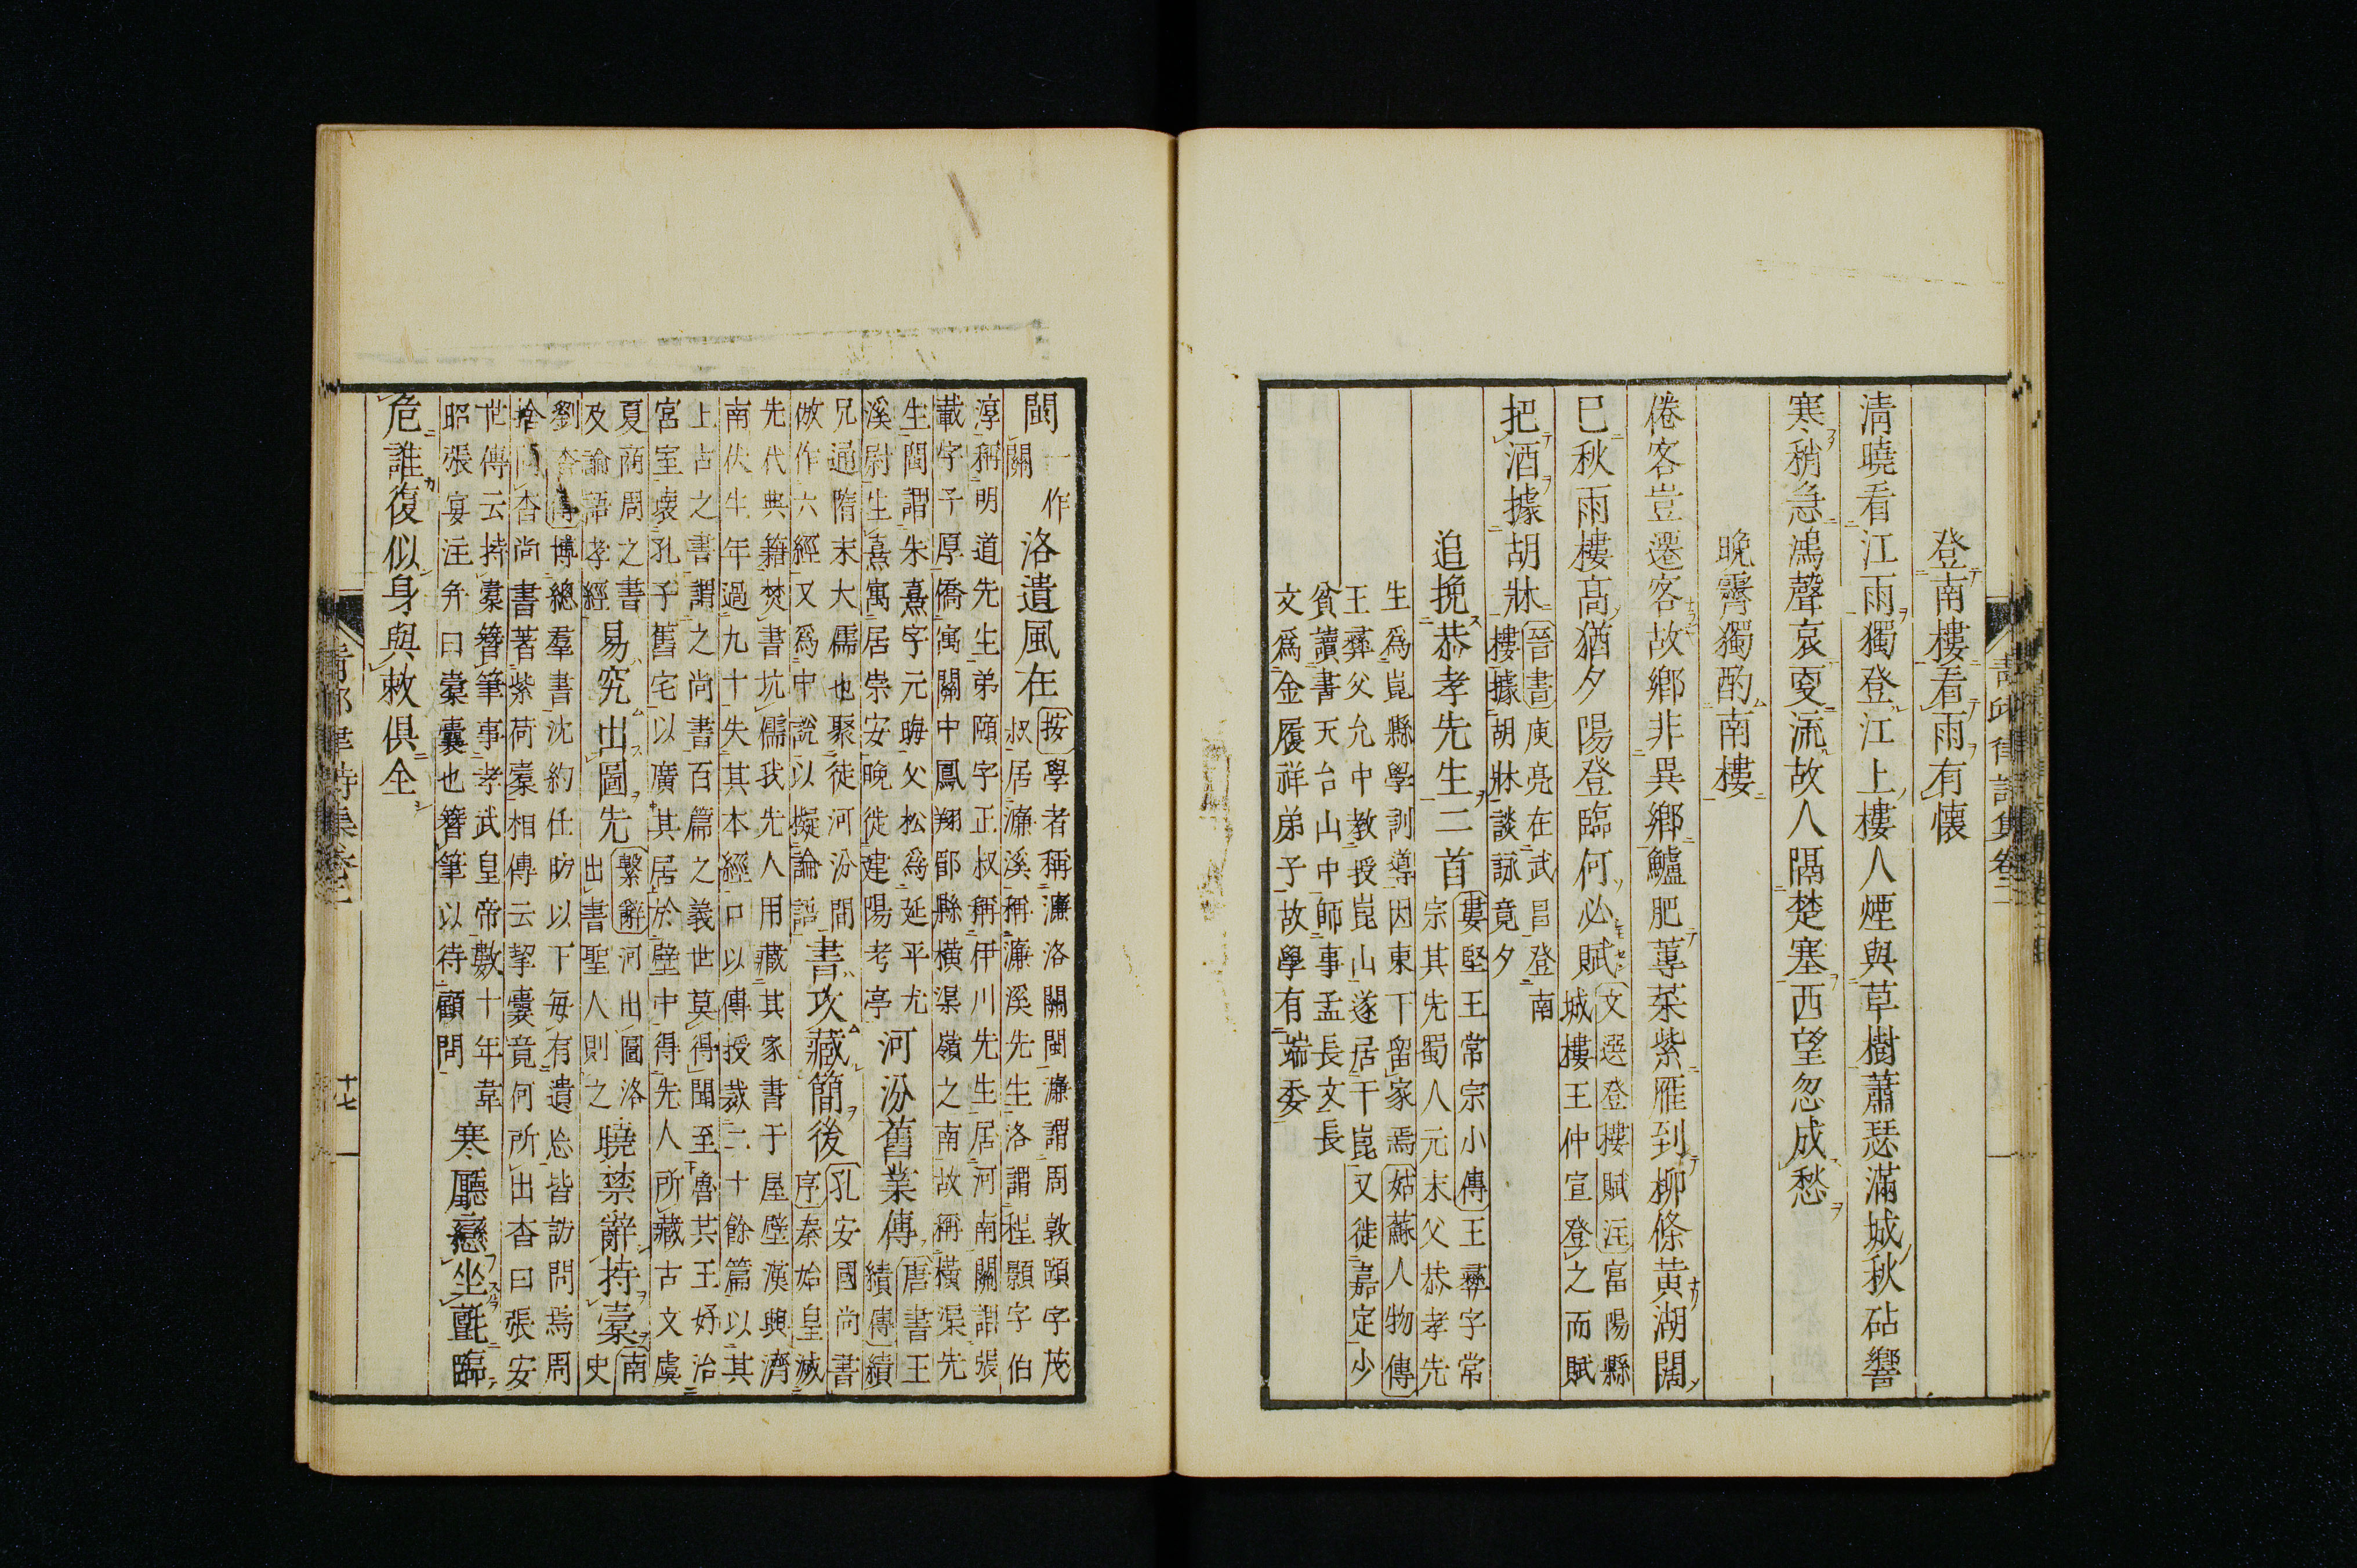 登南樓看雨有懷
清曉看江雨獨登江上樓人煙與草樹蕭瑟滿城秋砧響
寒稍急鴻聲哀更流故人隔楚塞西望忽成愁
晚霽獨酌南樓
倦客豈遷客故鄉非異鄉鱸肥蓴菜紫雁到柳條黃湖闊
巳秋雨樓髙猶夕陽登臨何必賦
文選登樓賦注富陽縣
城樓王仲宣登之而賦
把酒據胡牀
晉書庾亮在武昌登南
樓據胡牀談詠竟夕
追挽恭孝先生二首
婁堅王常宗小傳王彞字常
宗其先蜀人元末父恭孝先
生爲崑縣學訓導因東下留家焉姑蘇人物傳
王彞父允中教授崑山遂居于崑又徙嘉定少
貧讀書天台山中師事孟長文長
文爲金履祥弟子故學有端委
青邱律詩集卷二
閩
一作
關
洛遺風在
按學者稱濂洛關閩濂謂周敦頤字茂
叔居濂溪稱濂溪先生洛謂程顥字伯
淳稱明道先生弟頤字正叔稱伊川先生居河南關謂張
載字子厚僑寓關中鳳翔郿縣橫渠嶺之南故稱橫渠先
生閩謂朱熹字元晦父松爲延平尤
溪尉生熹寓居崇安晚徙建陽考亭
河汾舊業傳
唐書王
績傳績
兄通隋末大儒也聚徒河汾間
倣作六經又爲中說以擬論語
書攻藏簡後
孔安國尚書
序秦始皇滅
先代典籍焚書坑儒我先人用藏其家書于屋壁漢興濟
南伏生年過九十失其本經口以傳授裁二十餘篇以其
上古之書謂之尚書百篇之義世莫得聞至魯共王好治
宮室壞孔子舊宅以廣其居於壁中得先人所藏古文虞
夏商周之書
及論語孝經
易究出圖先
繫辭河出圖洛
出書聖人則之
曉禁辭持橐
南史
劉杳傳博總羣書沈約任昉以下每有遺忘皆訪問焉周
捨問杳尚書著紫荷橐相傳云挈囊竟何所出杳曰張安
世傳云持橐簪筆事孝武皇帝數十年韋
昭張晏注弁曰橐囊也簪筆以待顧問
寒廳戀坐氈臨
危誰復似身與敕俱全
青邱律詩集卷二
十七